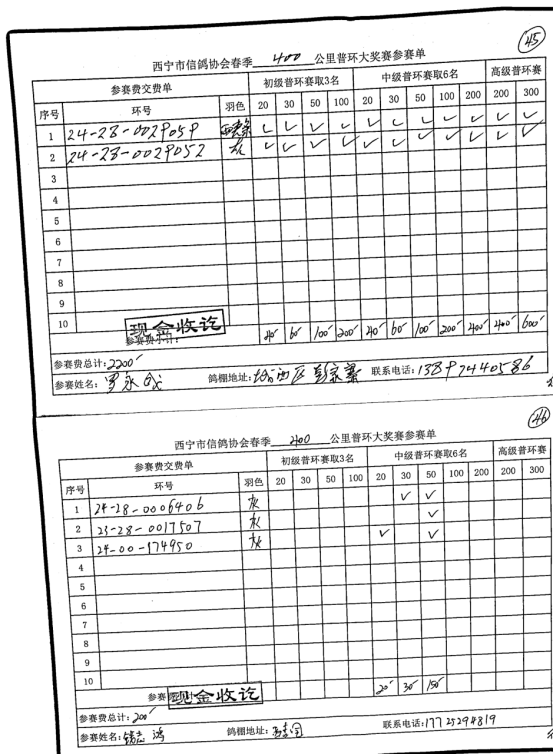 45
西宁市信鸽协会春季 400 公里普环大奖赛参赛单
参赛费交费单 初级普环赛取3名 中级普环赛取6名 高级普环赛
序号 环号 羽色 20 30 50 100 20 30 50 100 200 200 300
1 24-28-0029059 ✓ ✓ ✓ ✓ ✓ ✓ ✓ ✓ ✓ ✓ ✓
2 24-28-0029052 灰 ✓ ✓ ✓ ✓ ✓ ✓ ✓ ✓ ✓ ✓ ✓
3
4
5
6
7
8
9
10
现金收讫
参赛费小计: 40 60 100 200 40 60 100 200 400 400 600
参赛费总计: 2200
参赛姓名: 罗永 鸽棚地址: 城西区彭家寨 联系电话: 13897440586
46
西宁市信鸽协会春季 400 公里普环大奖赛参赛单
参赛费交费单 初级普环赛取3名 中级普环赛取6名 高级普环赛
序号 环号 羽色 20 30 50 100 20 30 50 100 200 200 300
1 24-28-0006406 灰 ✓ ✓
2 23-28-0017507 灰 ✓
3 24-00-174950 灰 ✓ ✓
4
5
6
7
8
9
10
参赛 计 现金收讫 20 30 150
参赛费总计: 200
参赛姓名: 鸿 鸽棚地址: 联系电话: 17725294819